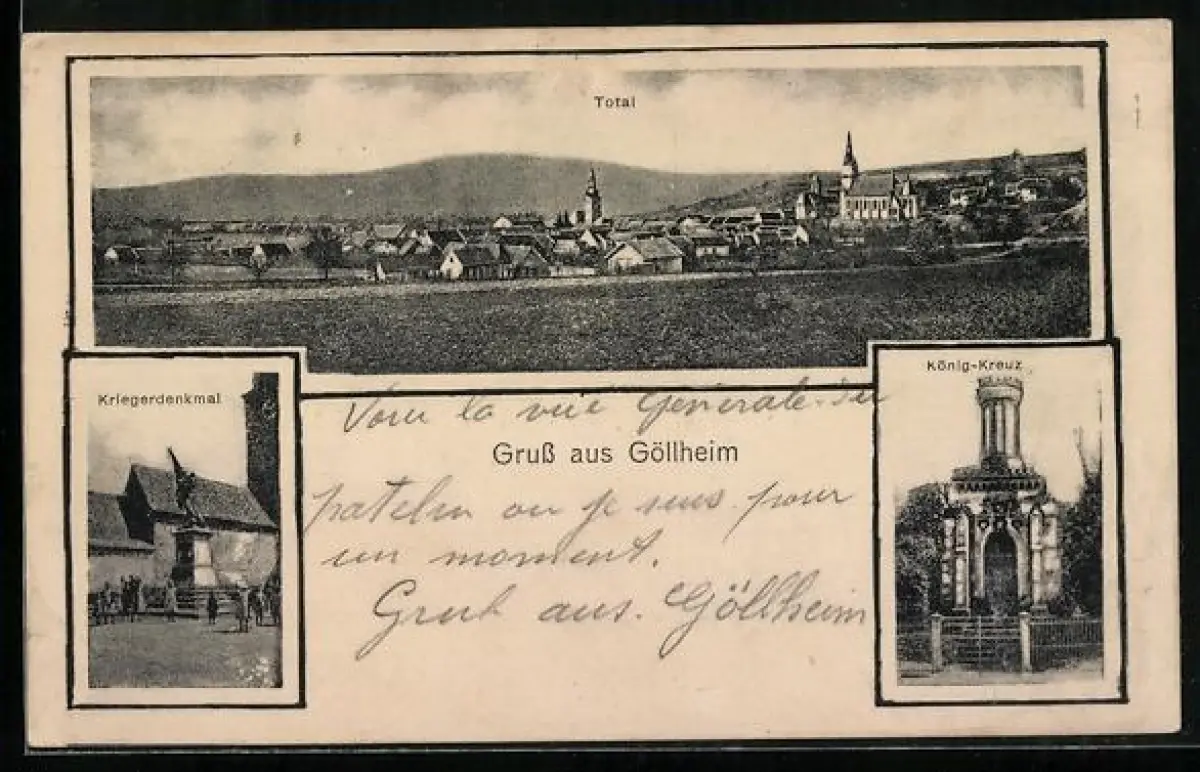 Total
Kriegerdenkmal
König-Kreuz
la vue Générale du
Gruß aus Göllheim
ou je suis pour
un moment.
Gruh aus. Göllheim